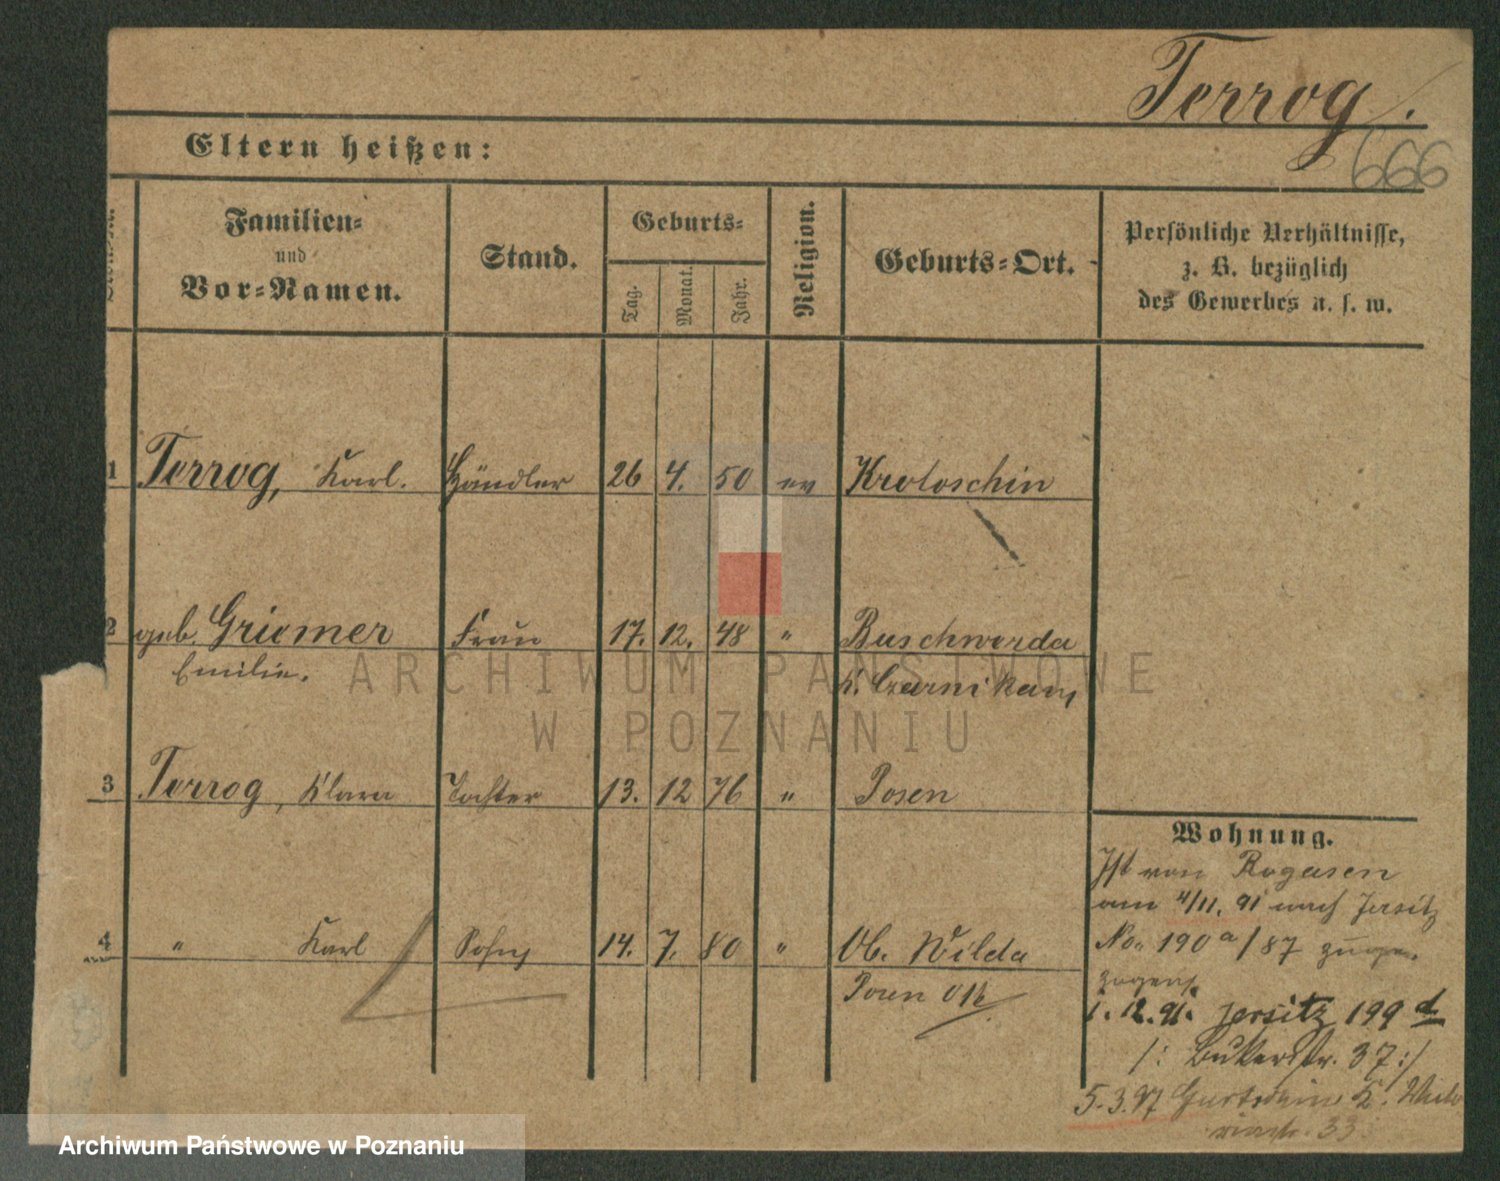 Terrog.
666
Eltern heißen:
Familien-
und
Vor-Namen.
Stand.
Geburts-
Tag.
Monat.
Jahr.
Religion.
Geburts-Ort.
Persönliche Verhältnisse,
z. B. bezüglich
des Gewerbes u. s. w.
1 Terrog, Karl. Händler 26 4. 50 ev Krotoschin
2 geb. Griemer Frau 17. 12. 48 " Buschwerda
Emilie. b. Czarnikau
3 Terrog, Klara Tochter 13. 12 76 " Posen
4 " Karl Sohn 14. 7. 80 " Ob. Wilda
Posen
Wohnung.
Ist von Rogasen
am 4/11. 91 nach Jersitz
No. 190 a/87 zuge-
zogen.
1. 12. 91. Jersitz 199 d
/: Bukerstr. 37 :/
5.3.97
33
ARCHIWUM PAŃSTWOWE
W POZNANIU
Archiwum Państwowe w Poznaniu